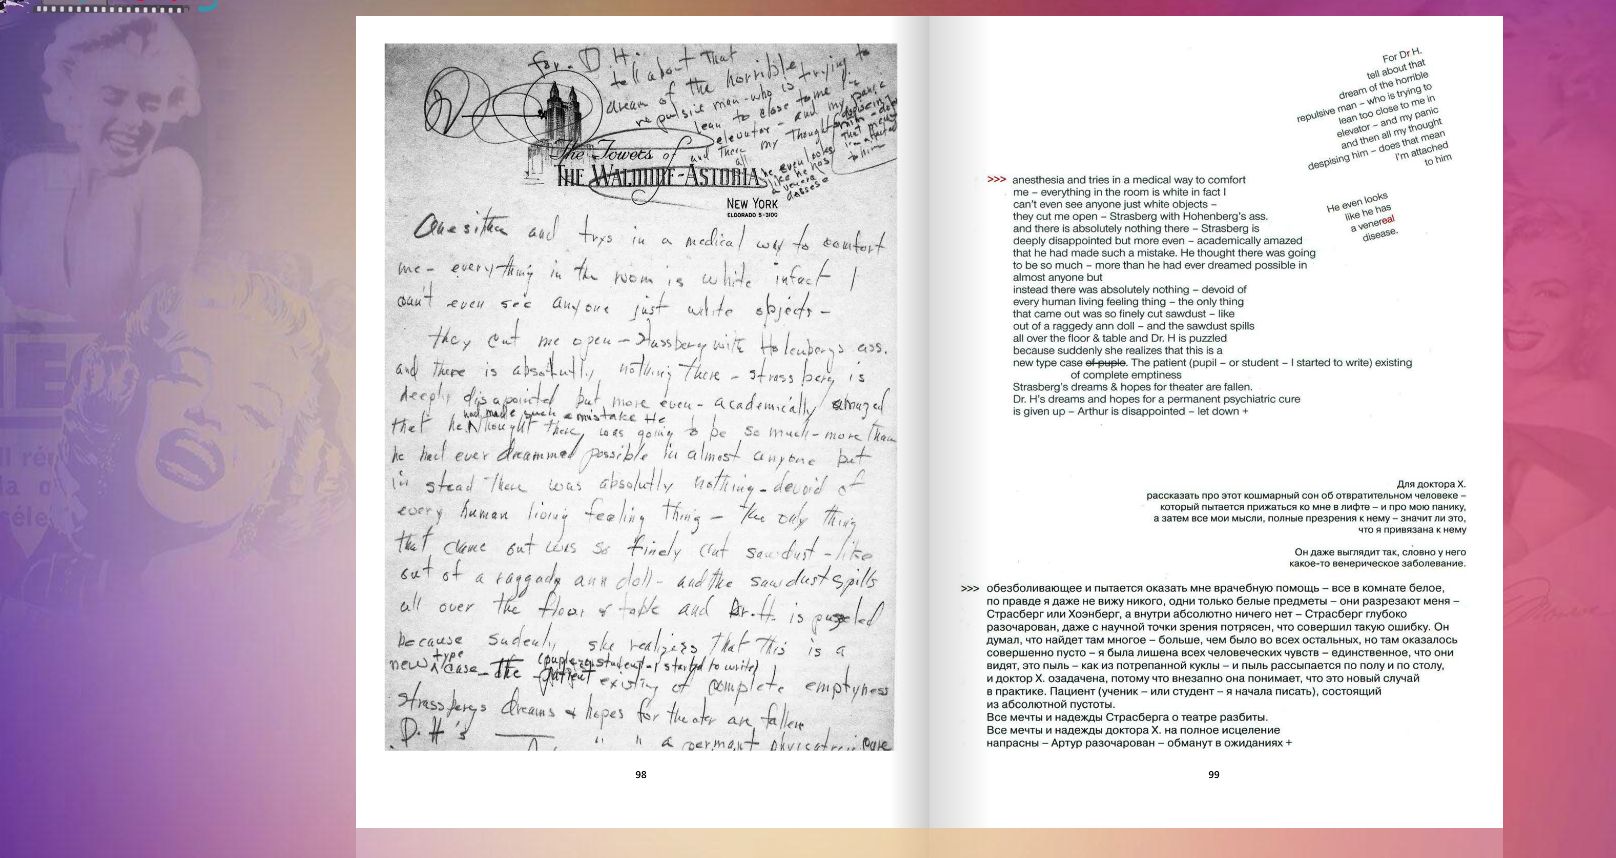 for. D. H.
tell about that
dream of the horrible
repulsive man - who is trying to
lean to close to me in
elevator - and my panic
and then all my thought despising
him - does
that mean
I'm attached
to him
he even looks
like he has
a venera
The Towers of
THE WALDORF-ASTORIA
NEW YORK
ELDORADO 5-3100
and trys in a medical way to comfort
me - everything in the room is white infact I
can't even see anyone just white objects -
they cut me open - Strassberg with Hohenbergs ass.
and there is absolutly nothing there - strassberg is
deeply disapointed but more even - academically amazed
had made such a mistake He
that he thought there was going to be so much - more than
he had ever dreammed possible in almost anyone but
in stead there was absolutly nothing - devoid of
every human living feeling thing - the only thing
that came out was so finely cut sawdust - like
out of a raggady ann doll - and the sawdust spills
all over the floor & table and Dr. H. is puzzled
because sudenly she realizes that this is a
new type case - The (pupil or student - I started to write)
patient existing of complete emptyness
strassbergs dreams & hopes for theater are fallen
D. H's " " a permant phycatric cure
98
For Dr H.
tell about that
dream of the horrible
repulsive man – who is trying to
lean too close to me in
elevator – and my panic
and then all my thought
despising him – does that mean
I'm attached
to him
He even looks
like he has
a venereal
disease.
>>> anesthesia and tries in a medical way to comfort
me – everything in the room is white in fact I
can't even see anyone just white objects –
they cut me open – Strasberg with Hohenberg's ass.
and there is absolutely nothing there – Strasberg is
deeply disappointed but more even – academically amazed
that he had made such a mistake. He thought there was going
to be so much – more than he had ever dreamed possible in
almost anyone but
instead there was absolutely nothing – devoid of
every human living feeling thing – the only thing
that came out was so finely cut sawdust – like
out of a raggedy ann doll – and the sawdust spills
all over the floor & table and Dr. H is puzzled
because suddenly she realizes that this is a
new type case of puple. The patient (pupil – or student – I started to write) existing
of complete emptiness
Strasberg's dreams & hopes for theater are fallen.
Dr. H's dreams and hopes for a permanent psychiatric cure
is given up – Arthur is disappointed – let down +
Для доктора Х.
рассказать про этот кошмарный сон об отвратительном человеке –
который пытается прижаться ко мне в лифте – и про мою панику,
а затем все мои мысли, полные презрения к нему – значит ли это,
что я привязана к нему
Он даже выглядит так, словно у него
какое-то венерическое заболевание.
>>> обезболивающее и пытается оказать мне врачебную помощь – все в комнате белое,
по правде я даже не вижу никого, одни только белые предметы – они разрезают меня –
Страсберг или Хоэнберг, а внутри абсолютно ничего нет – Страсберг глубоко
разочарован, даже с научной точки зрения потрясен, что совершил такую ошибку. Он
думал, что найдет там многое – больше, чем было во всех остальных, но там оказалось
совершенно пусто – я была лишена всех человеческих чувств – единственное, что они
видят, это пыль – как из потрепанной куклы – и пыль рассыпается по полу и по столу,
и доктор Х. озадачена, потому что внезапно она понимает, что это новый случай
в практике. Пациент (ученик – или студент – я начала писать), состоящий
из абсолютной пустоты.
Все мечты и надежды Страсберга о театре разбиты.
Все мечты и надежды доктора Х. на полное исцеление
напрасны – Артур разочарован – обманут в ожиданиях +
99